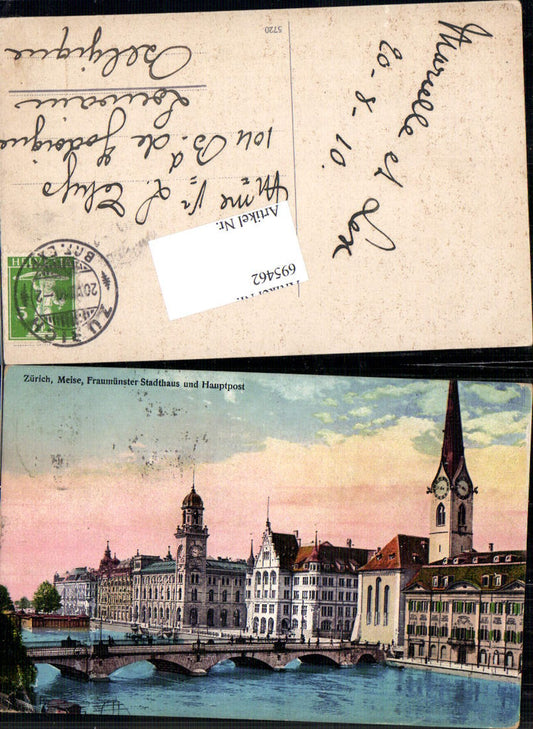 5720
Marcelle et Lex
20-8-10.
Mme Vve L. Thys
104 Bd de Jodoigne
Louvain
Belgique
Artikel Nr.
695462
ZÜRICH
Zürich, Meise, Fraumünster Stadthaus und Hauptpost